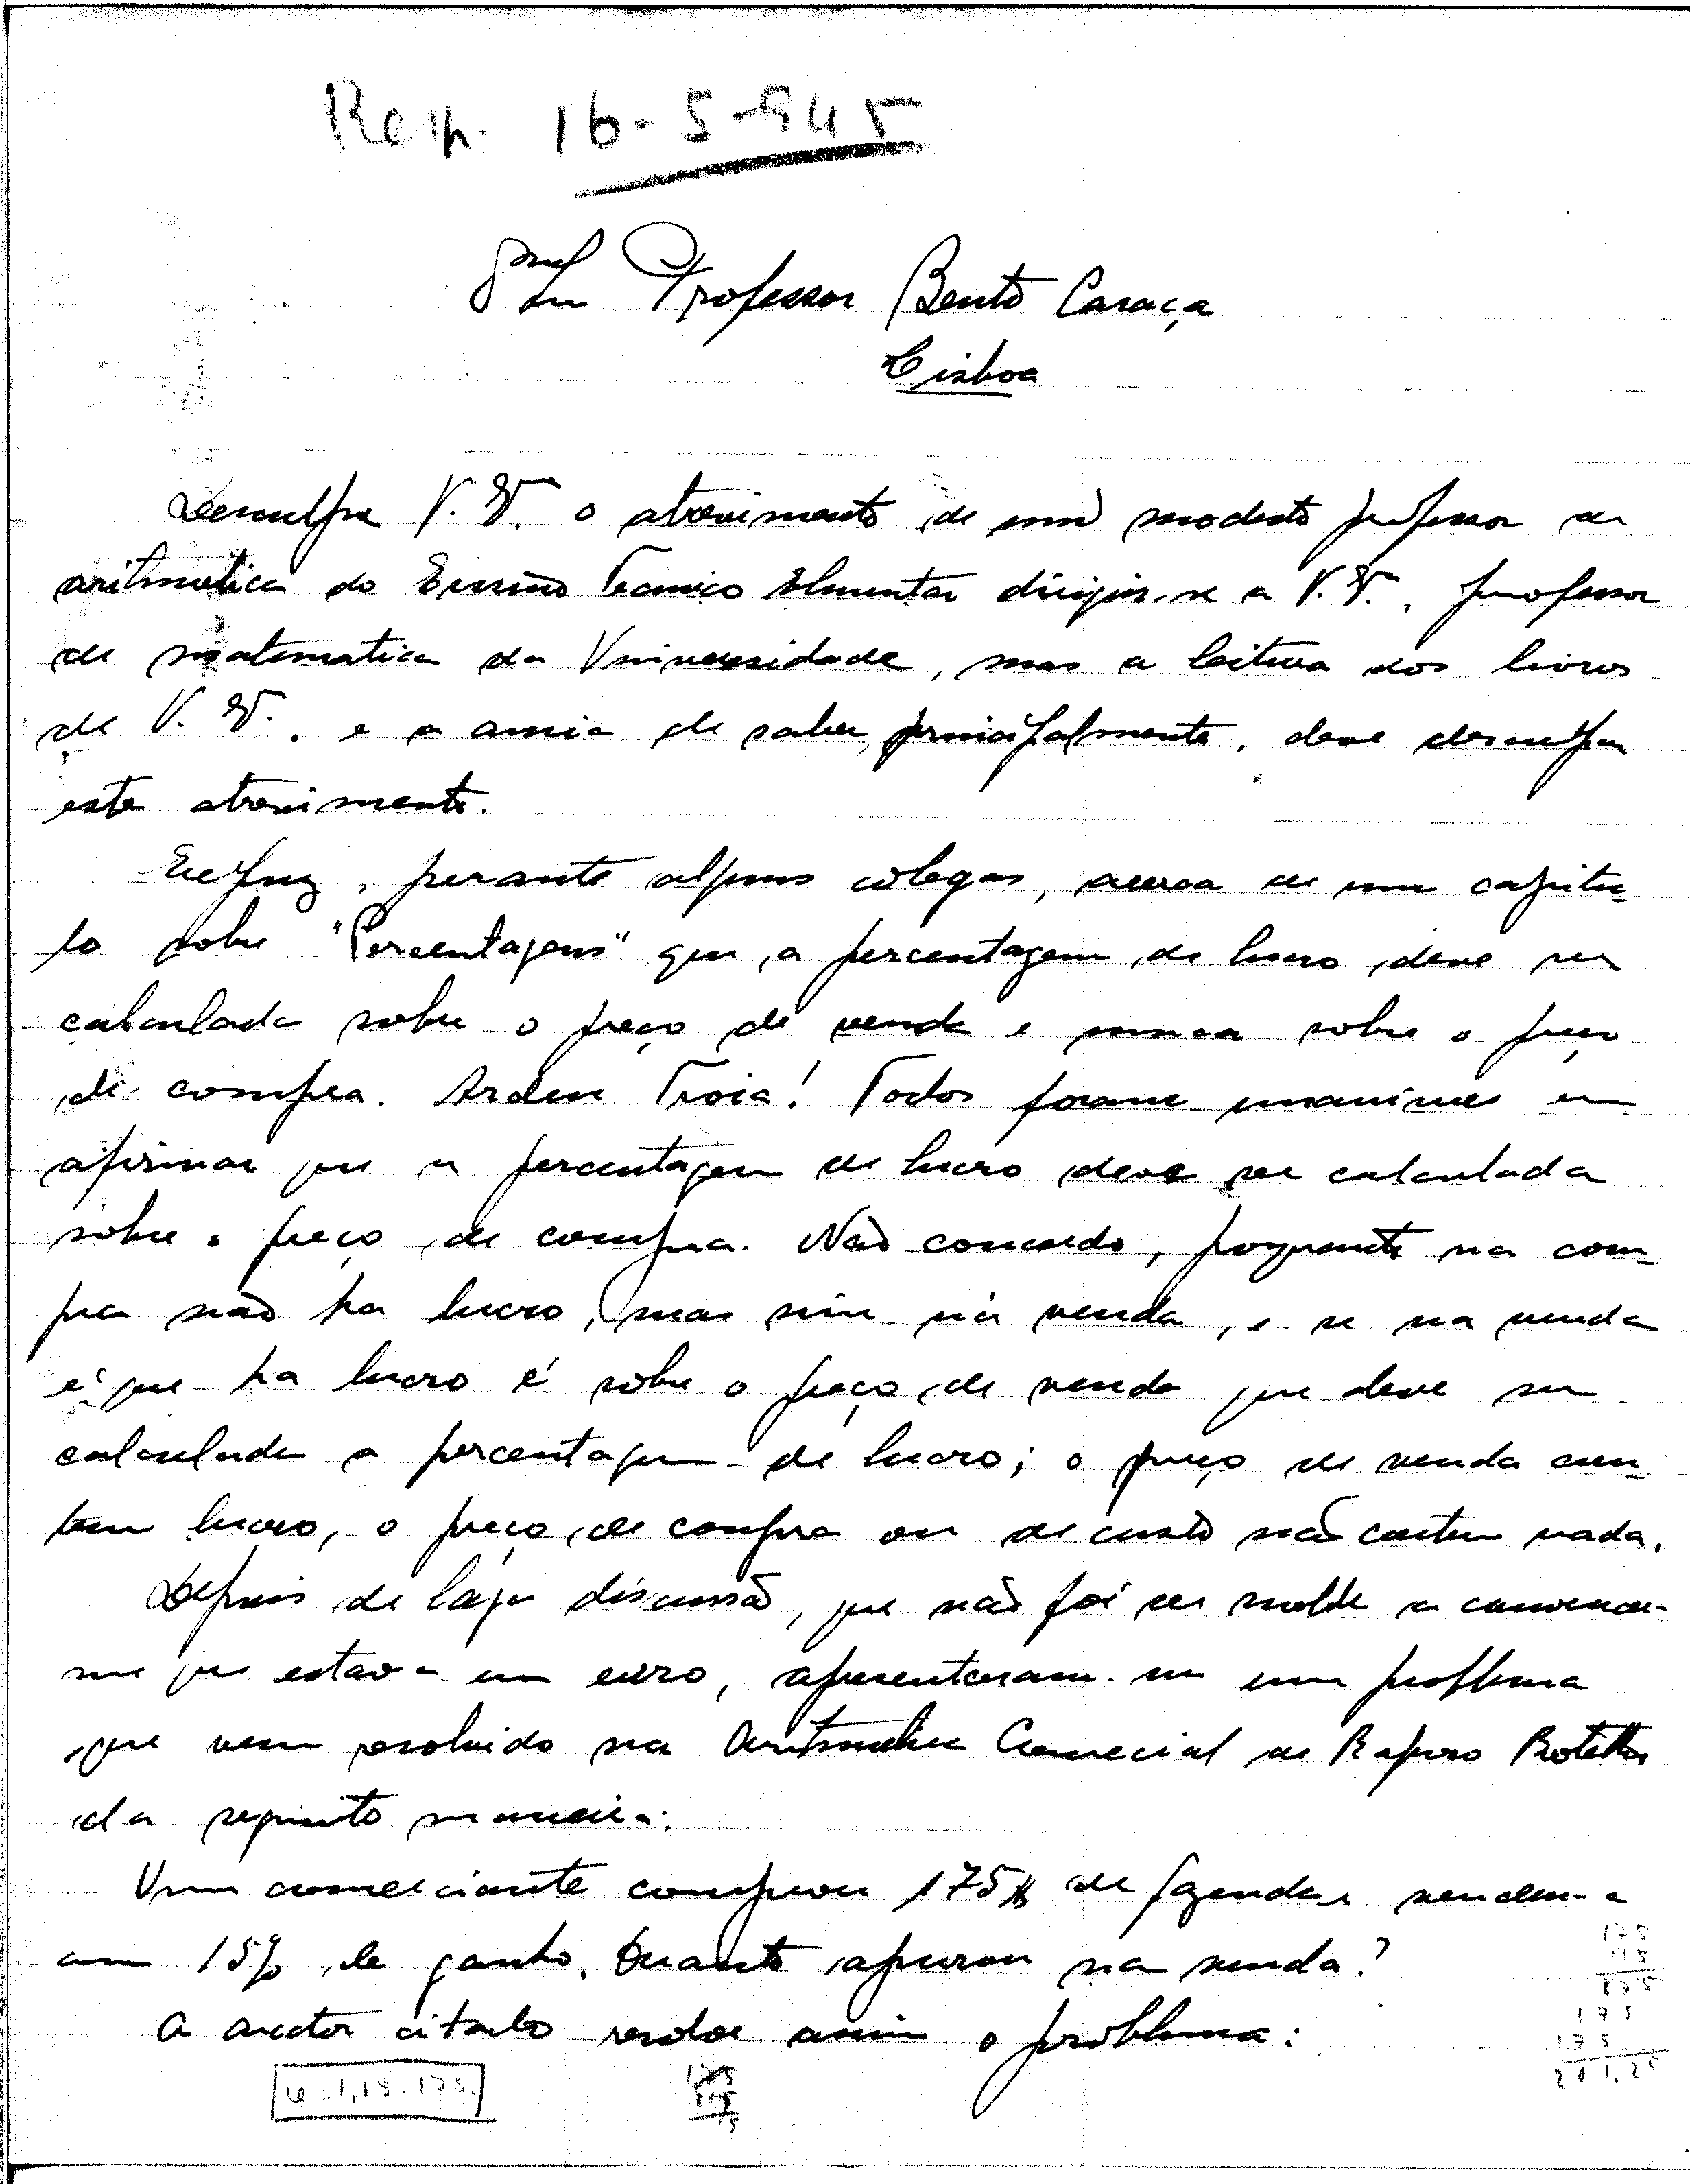 Resp. 16-5-945
Professor Bento Caraça
Lisboa
Desculpe V. Ex. o atrevimento de um modesto professor de
aritmetica do Ensino Tecnico Elementar dirigir-se a V. Ex., professor
de matematica da Universidade, mas a leitura dos livros
de V. Ex. e a ancia de saber, principalmente, deve desculpar
este atrevimento.
perante alguns colegas, acerca de um capitu-
lo sobre "Percentagens" que, a percentagem de lucro, deve ser
calculada sobre o preço de venda e nunca sobre o preço
de compra. Ardeu Troia! Todos foram unanimes em
afirmar que a percentagem de lucro deve ser calculada
sobre o preço de compra. Não concordo, porquanto na com-
pra não ha lucro, mas sim na venda, e se na venda
é que ha lucro é sobre o preço de venda que deve ser
calculada a percentagem de lucro; o preço de venda con-
tem lucro, o preço de compra ou de custo não contem nada.
Depois de larga discussão, que não foi de molde a convencer-
me que estava em erro, apresentaram-me um problema
que vem resolvido na Aritmetica Comercial de Raposo Botelho
da seguinte maneira:
Um comerciante comprou 175$ de fazenda e vendeu-a
com 15% de ganho. Quanto apurou na venda?
O autor citado resolve assim o problema:
175
115
875
175
175
201,25
1,15.175
175
115